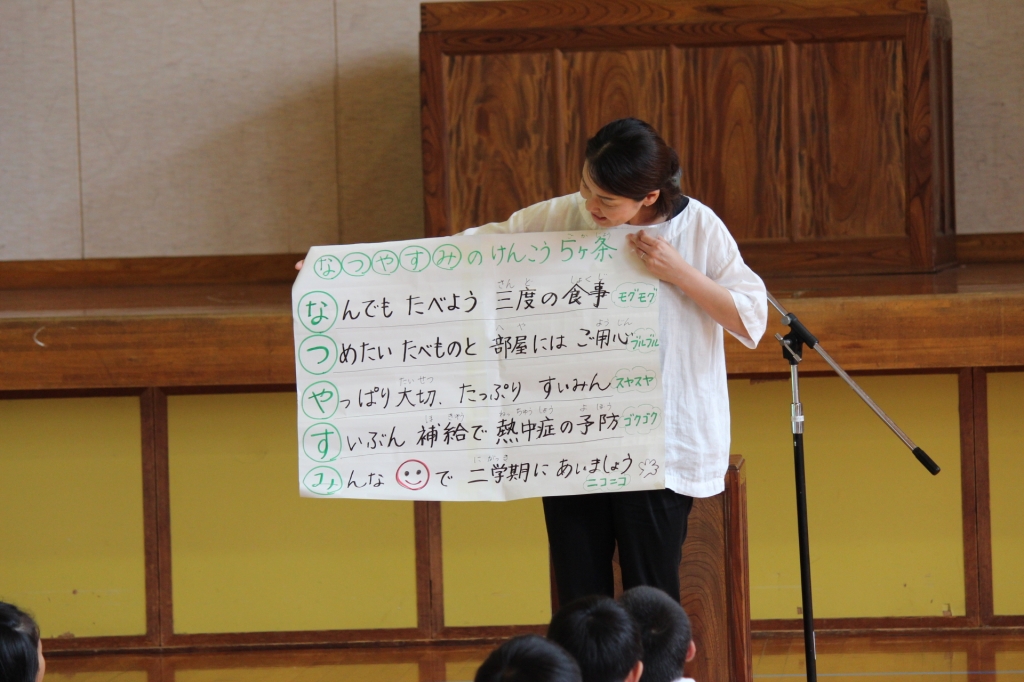 なつやすみのけんこう5ヶ条
なんでも たべよう 三度の食事 モグモグ
つめたい たべものと 部屋には ご用心 ブルブル
やっぱり 大切、たっぷり すいみん スヤスヤ
すいぶん 補給で 熱中症の予防 ゴクゴク
みんな で 二学期に あいましょう
ニコニコ